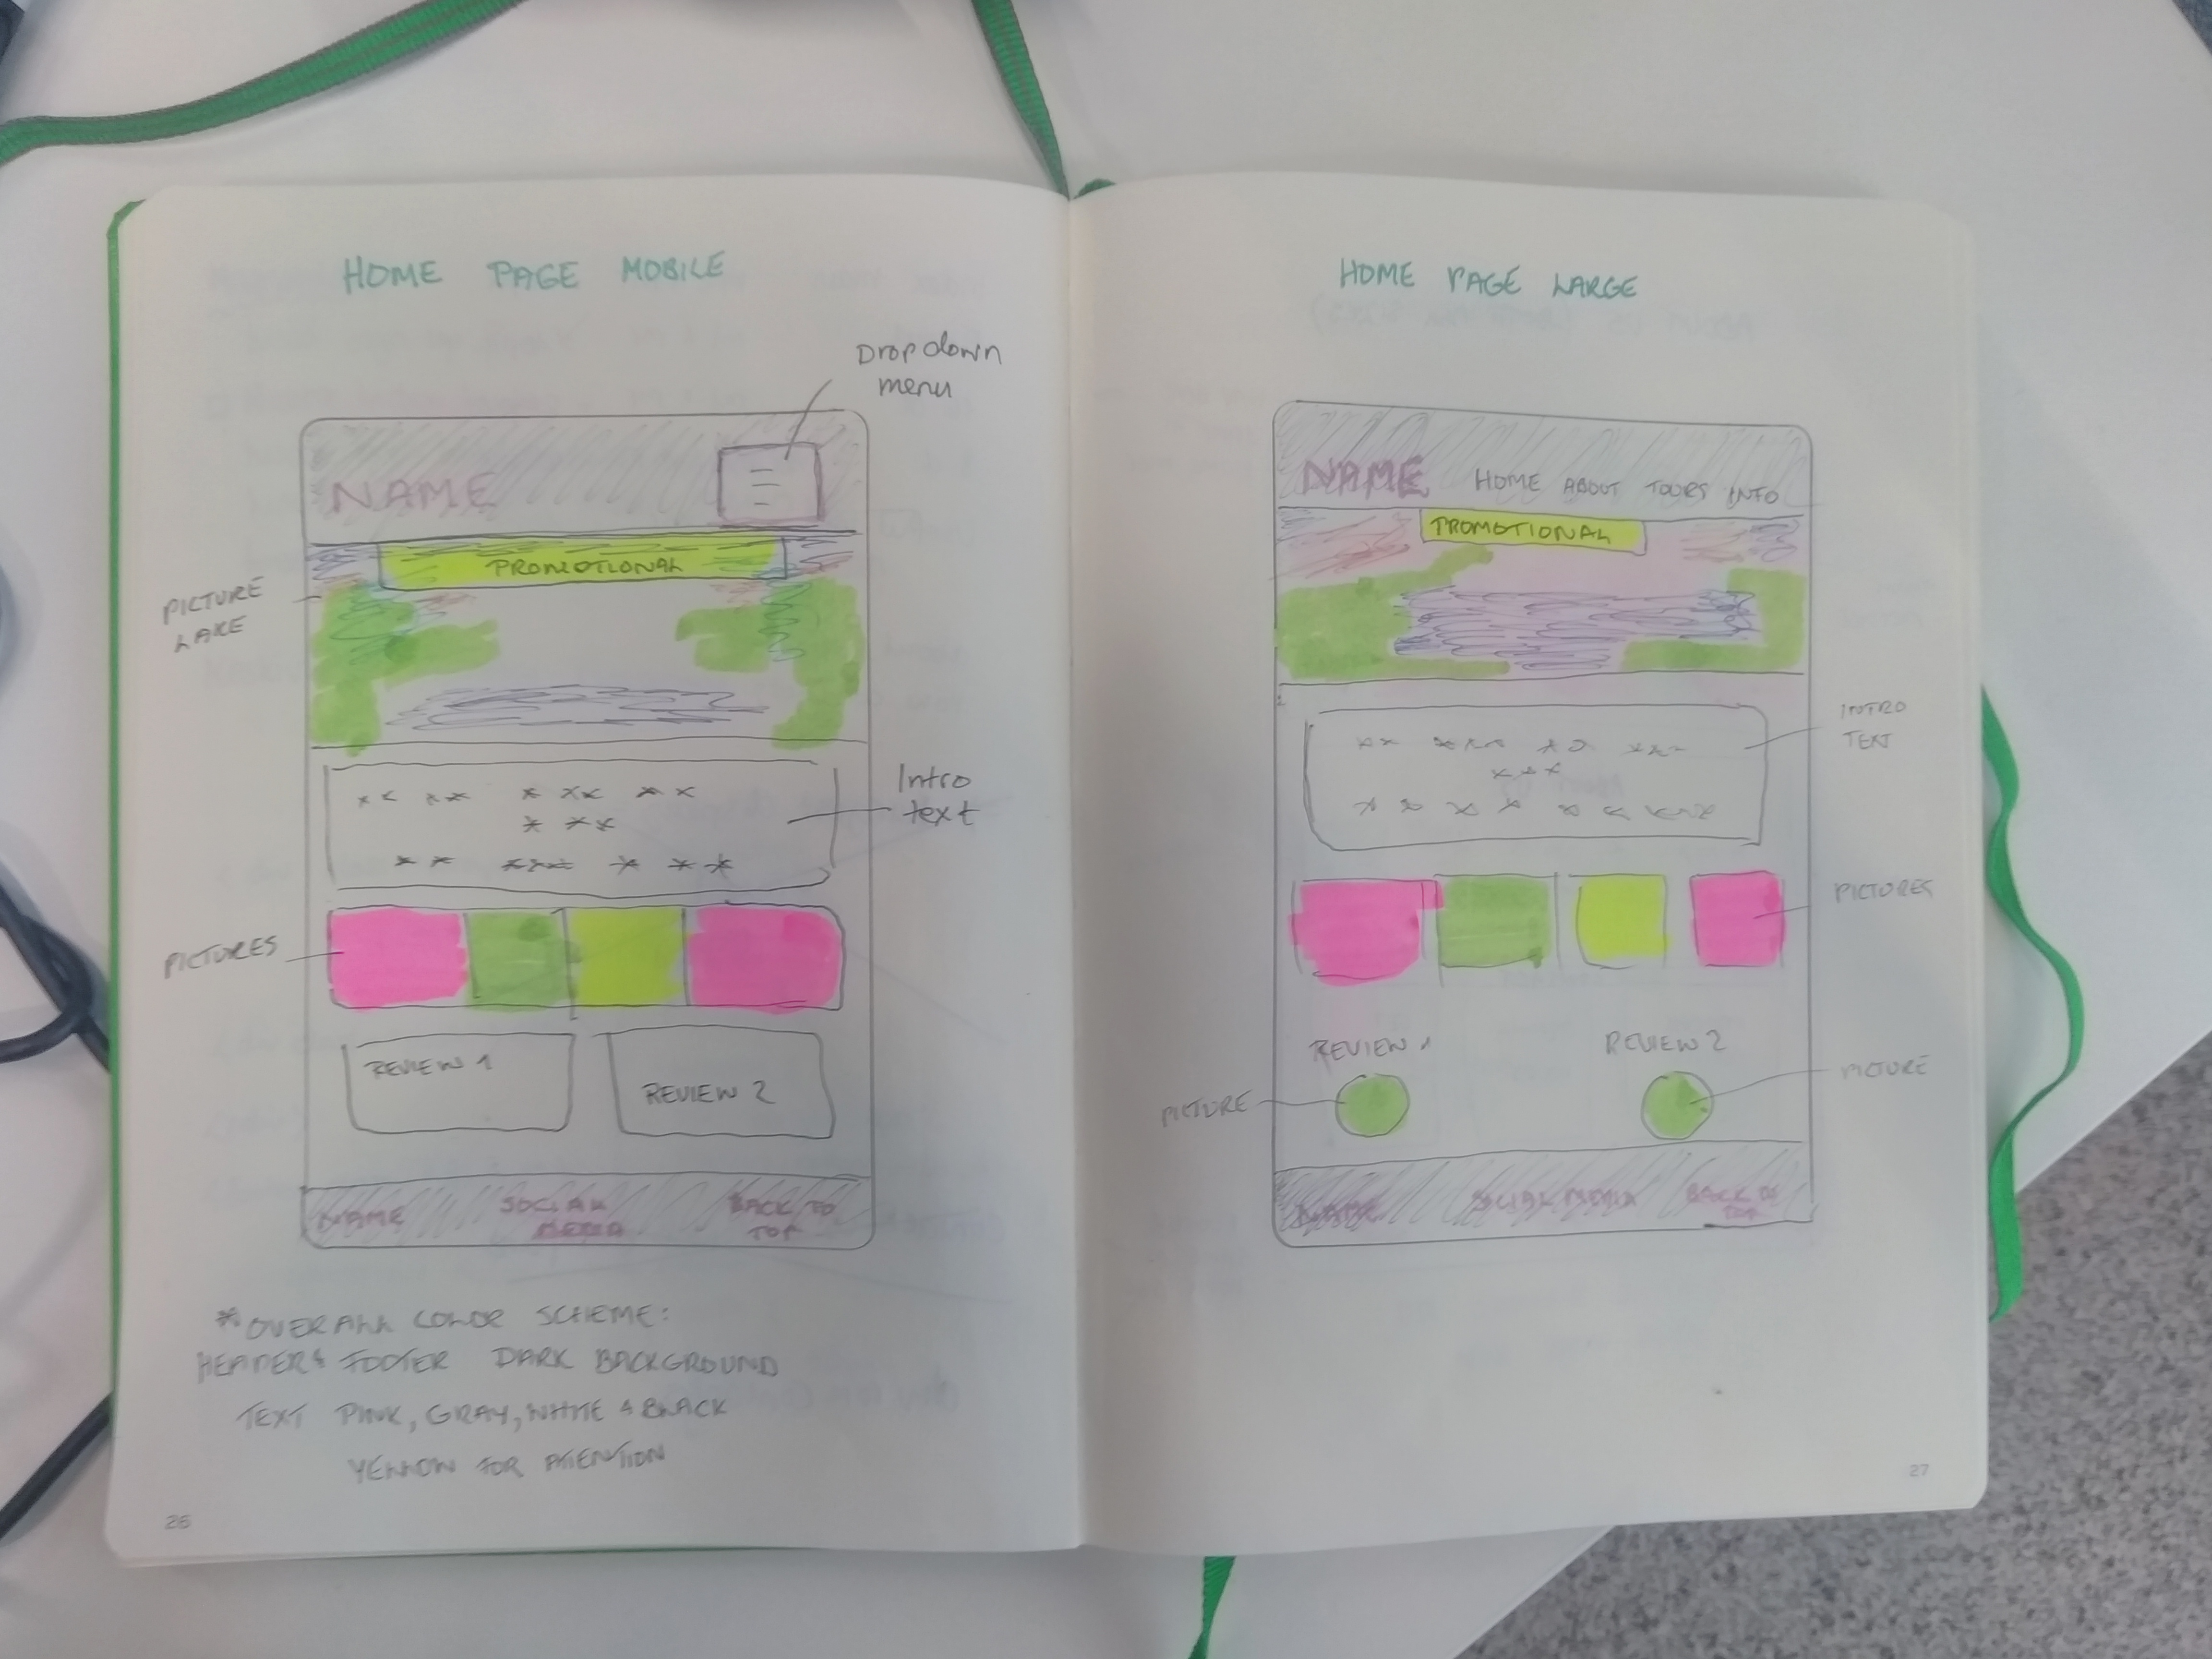 HOME PAGE MOBILE
Dropdown
menu
NAME
PROMOTIONAL
PICTURE
LAKE
Intro
text
PICTURES
REVIEW 1
REVIEW 2
NAME
SOCIAL
MEDIA
BACK TO
TOP
* OVERALL COLOR SCHEME:
HEADER & FOOTER DARK BACKGROUND
TEXT PINK, GRAY, WHITE & BLACK
YELLOW FOR ATTENTION
26
HOME PAGE LARGE
NAME HOME ABOUT TOURS INFO
PROMOTIONAL
INTRO
TEXT
PICTURES
REVIEW 1
REVIEW 2
PICTURE
PICTURE
NAME
SOCIAL MEDIA
BACK TO
TOP
27